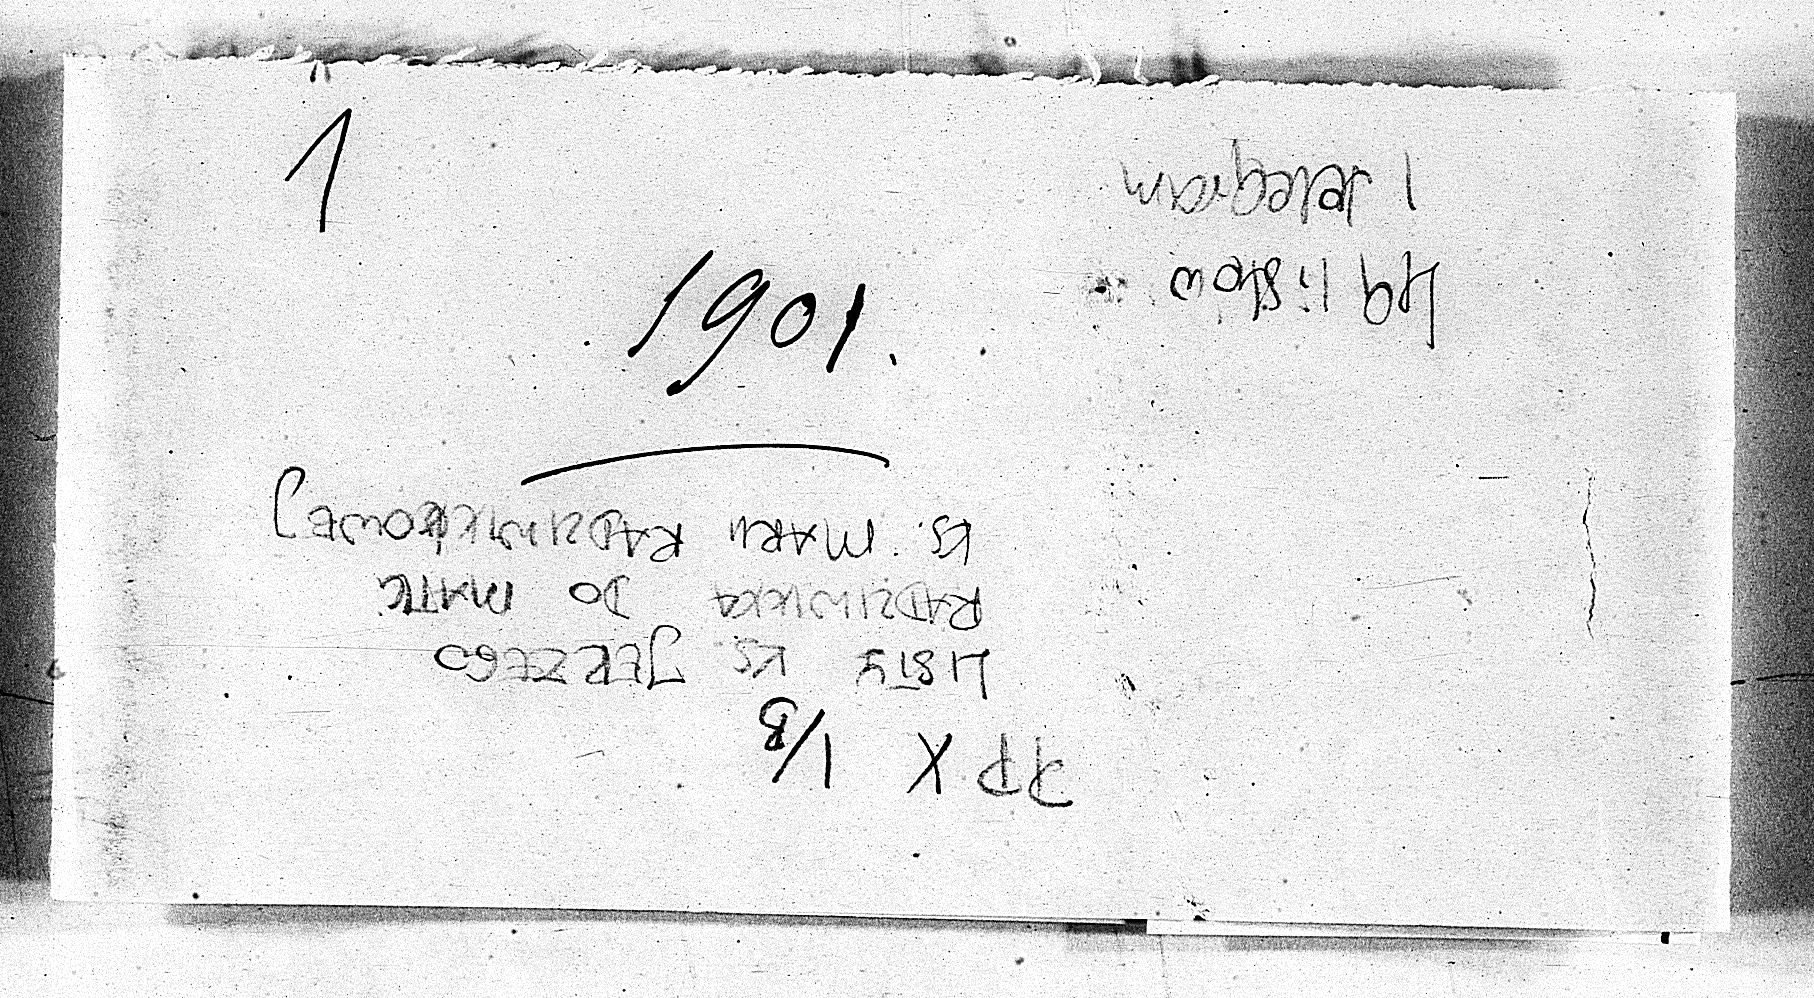 1
1901.
X 1/B
LISTY KS JERZEGO
RADZIWIŁŁA DO MATKI
KS. MARII RADZIWIŁŁOWEJ
49 listów
1 telegram